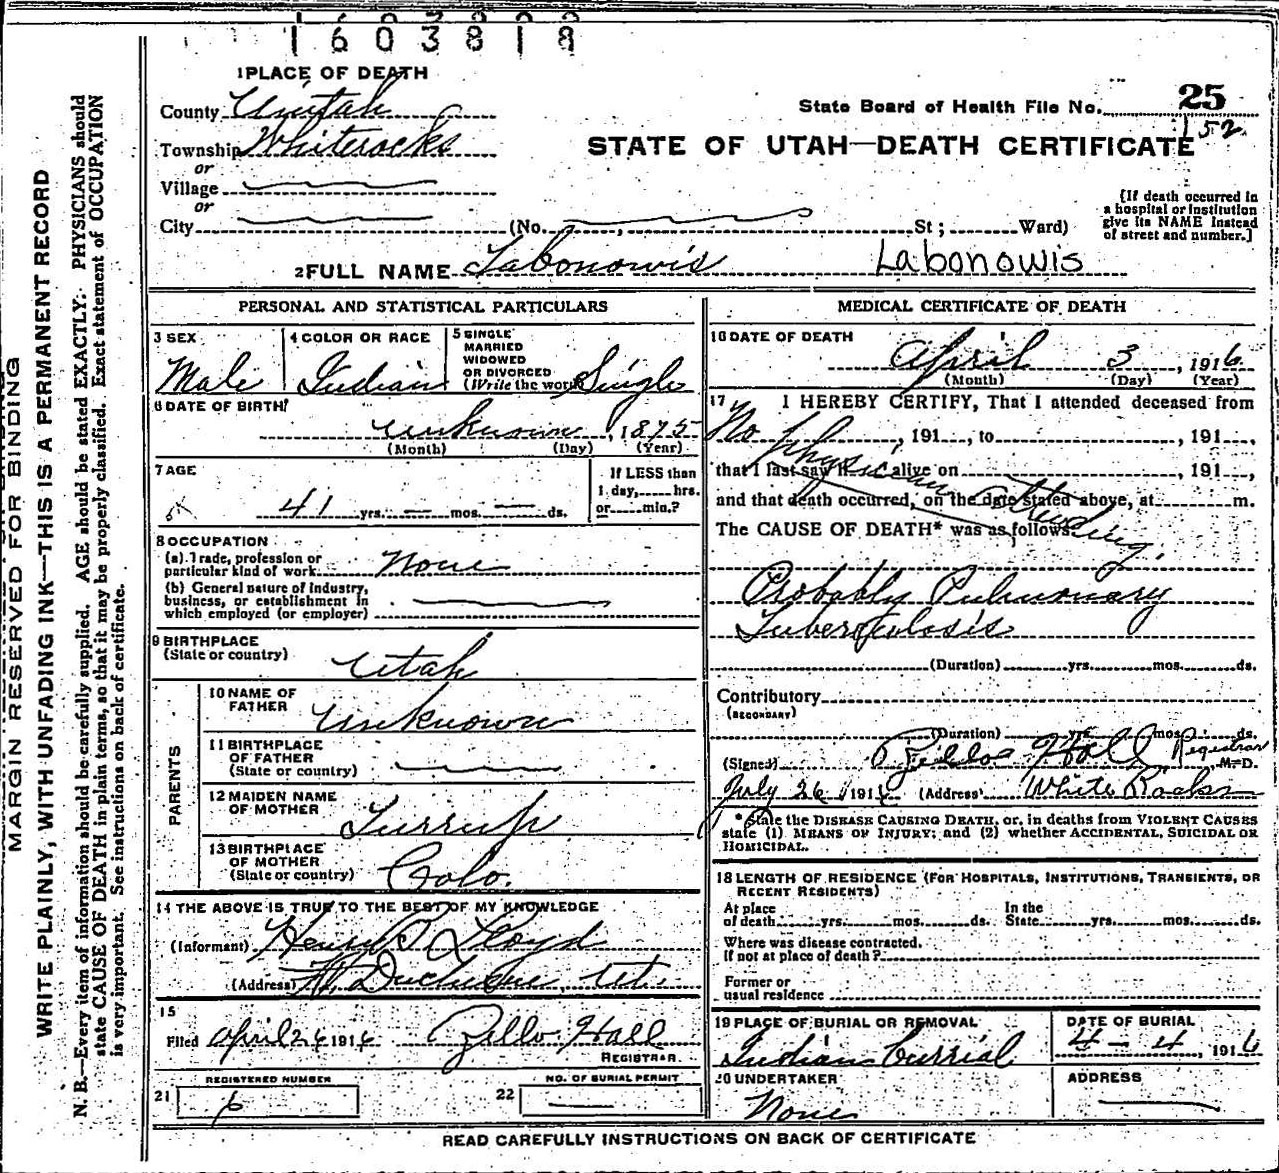 1603818
1 PLACE OF DEATH
County Uintah
Township Whiterocks
or
Village
or
City (No. , St ; Ward)
State Board of Health File No. 25
152
STATE OF UTAH—DEATH CERTIFICATE
[If death occurred in a hospital or institution give its NAME instead of street and number.]
2 FULL NAME Labonowis Labonowis
PERSONAL AND STATISTICAL PARTICULARS
3 SEX
Male
4 COLOR OR RACE
Indian
5 SINGLE
MARRIED
WIDOWED
OR DIVORCED
(Write the word) Single
6 DATE OF BIRTH
unknown , 1875
(Month) (Day) (Year)
7 AGE
41 yrs. — mos. — ds.
If LESS than
1 day, hrs.
or min.?
8 OCCUPATION
(a) Trade, profession or
particular kind of work None
(b) General nature of industry,
business, or establishment in
which employed (or employer)
9 BIRTHPLACE
(State or country) Utah
PARENTS
10 NAME OF
FATHER unknown
11 BIRTHPLACE
OF FATHER
(State or country)
12 MAIDEN NAME
OF MOTHER Turrup
13 BIRTHPLACE
OF MOTHER
(State or country) Colo.
14 THE ABOVE IS TRUE TO THE BEST OF MY KNOWLEDGE
(Informant) Henry P Lloyd
(Address) Ft. Duchesne, Ut.
15
Filed April 26 1916 Zello Hall
REGISTRAR
21 REGISTERED NUMBER
6
22 NO. OF BURIAL PERMIT
—
MEDICAL CERTIFICATE OF DEATH
16 DATE OF DEATH
April 3 , 1916
(Month) (Day) (Year)
17 I HEREBY CERTIFY, That I attended deceased from
No , 191 , to , 191 ,
physician
that I last saw h alive on , 191 ,
and that death occurred, on the date stated above, at m.
attending.
The CAUSE OF DEATH* was as follows:
Probably Pulmonary
Tuberculosis
(Duration) yrs. mos. ds.
Contributory
(SECONDARY)
(Duration) yrs. mos. ds.
(Signed) Zello Hall Registrar M.D.
July 26, 1916 (Address) White Rocks
*State the DISEASE CAUSING DEATH, or, in deaths from VIOLENT CAUSES
state (1) MEANS OF INJURY; and (2) whether ACCIDENTAL, SUICIDAL OR
HOMICIDAL.
18 LENGTH OF RESIDENCE (FOR HOSPITALS, INSTITUTIONS, TRANSIENTS, OR
RECENT RESIDENTS)
At place
of death yrs. mos. ds. In the
State yrs. mos. ds.
Where was disease contracted,
if not at place of death?
Former or
usual residence
19 PLACE OF BURIAL OR REMOVAL
Indian burrial
DATE OF BURIAL
4 – 4 , 1916
20 UNDERTAKER
None
ADDRESS
READ CAREFULLY INSTRUCTIONS ON BACK OF CERTIFICATE
MARGIN RESERVED FOR BINDING
WRITE PLAINLY, WITH UNFADING INK—THIS IS A PERMANENT RECORD
N. B.—Every item of information should be carefully supplied. AGE should be stated EXACTLY. PHYSICIANS should
state CAUSE OF DEATH in plain terms, so that it may be properly classified. Exact statement of OCCUPATION
is very important. See instructions on back of certificate.